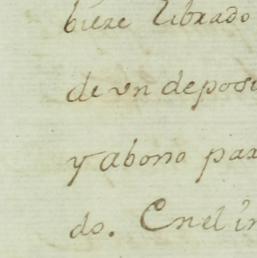 biere librado
de vn deposi
y abono par
do. En el in